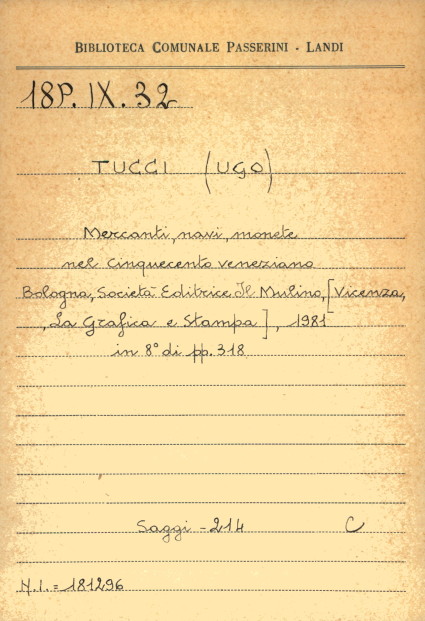 BIBLIOTECA COMUNALE PASSERINI - LANDI
18P. IX. 32
TUCCI (UGO)
Mercanti, navi, monete
nel Cinquecento veneziano
Bologna, Società Editrice Il Mulino, [Vicenza,
, La Grafica e Stampa], 1981
in 8° di pp. 318
Saggi - 214 C
N.I. = 181296